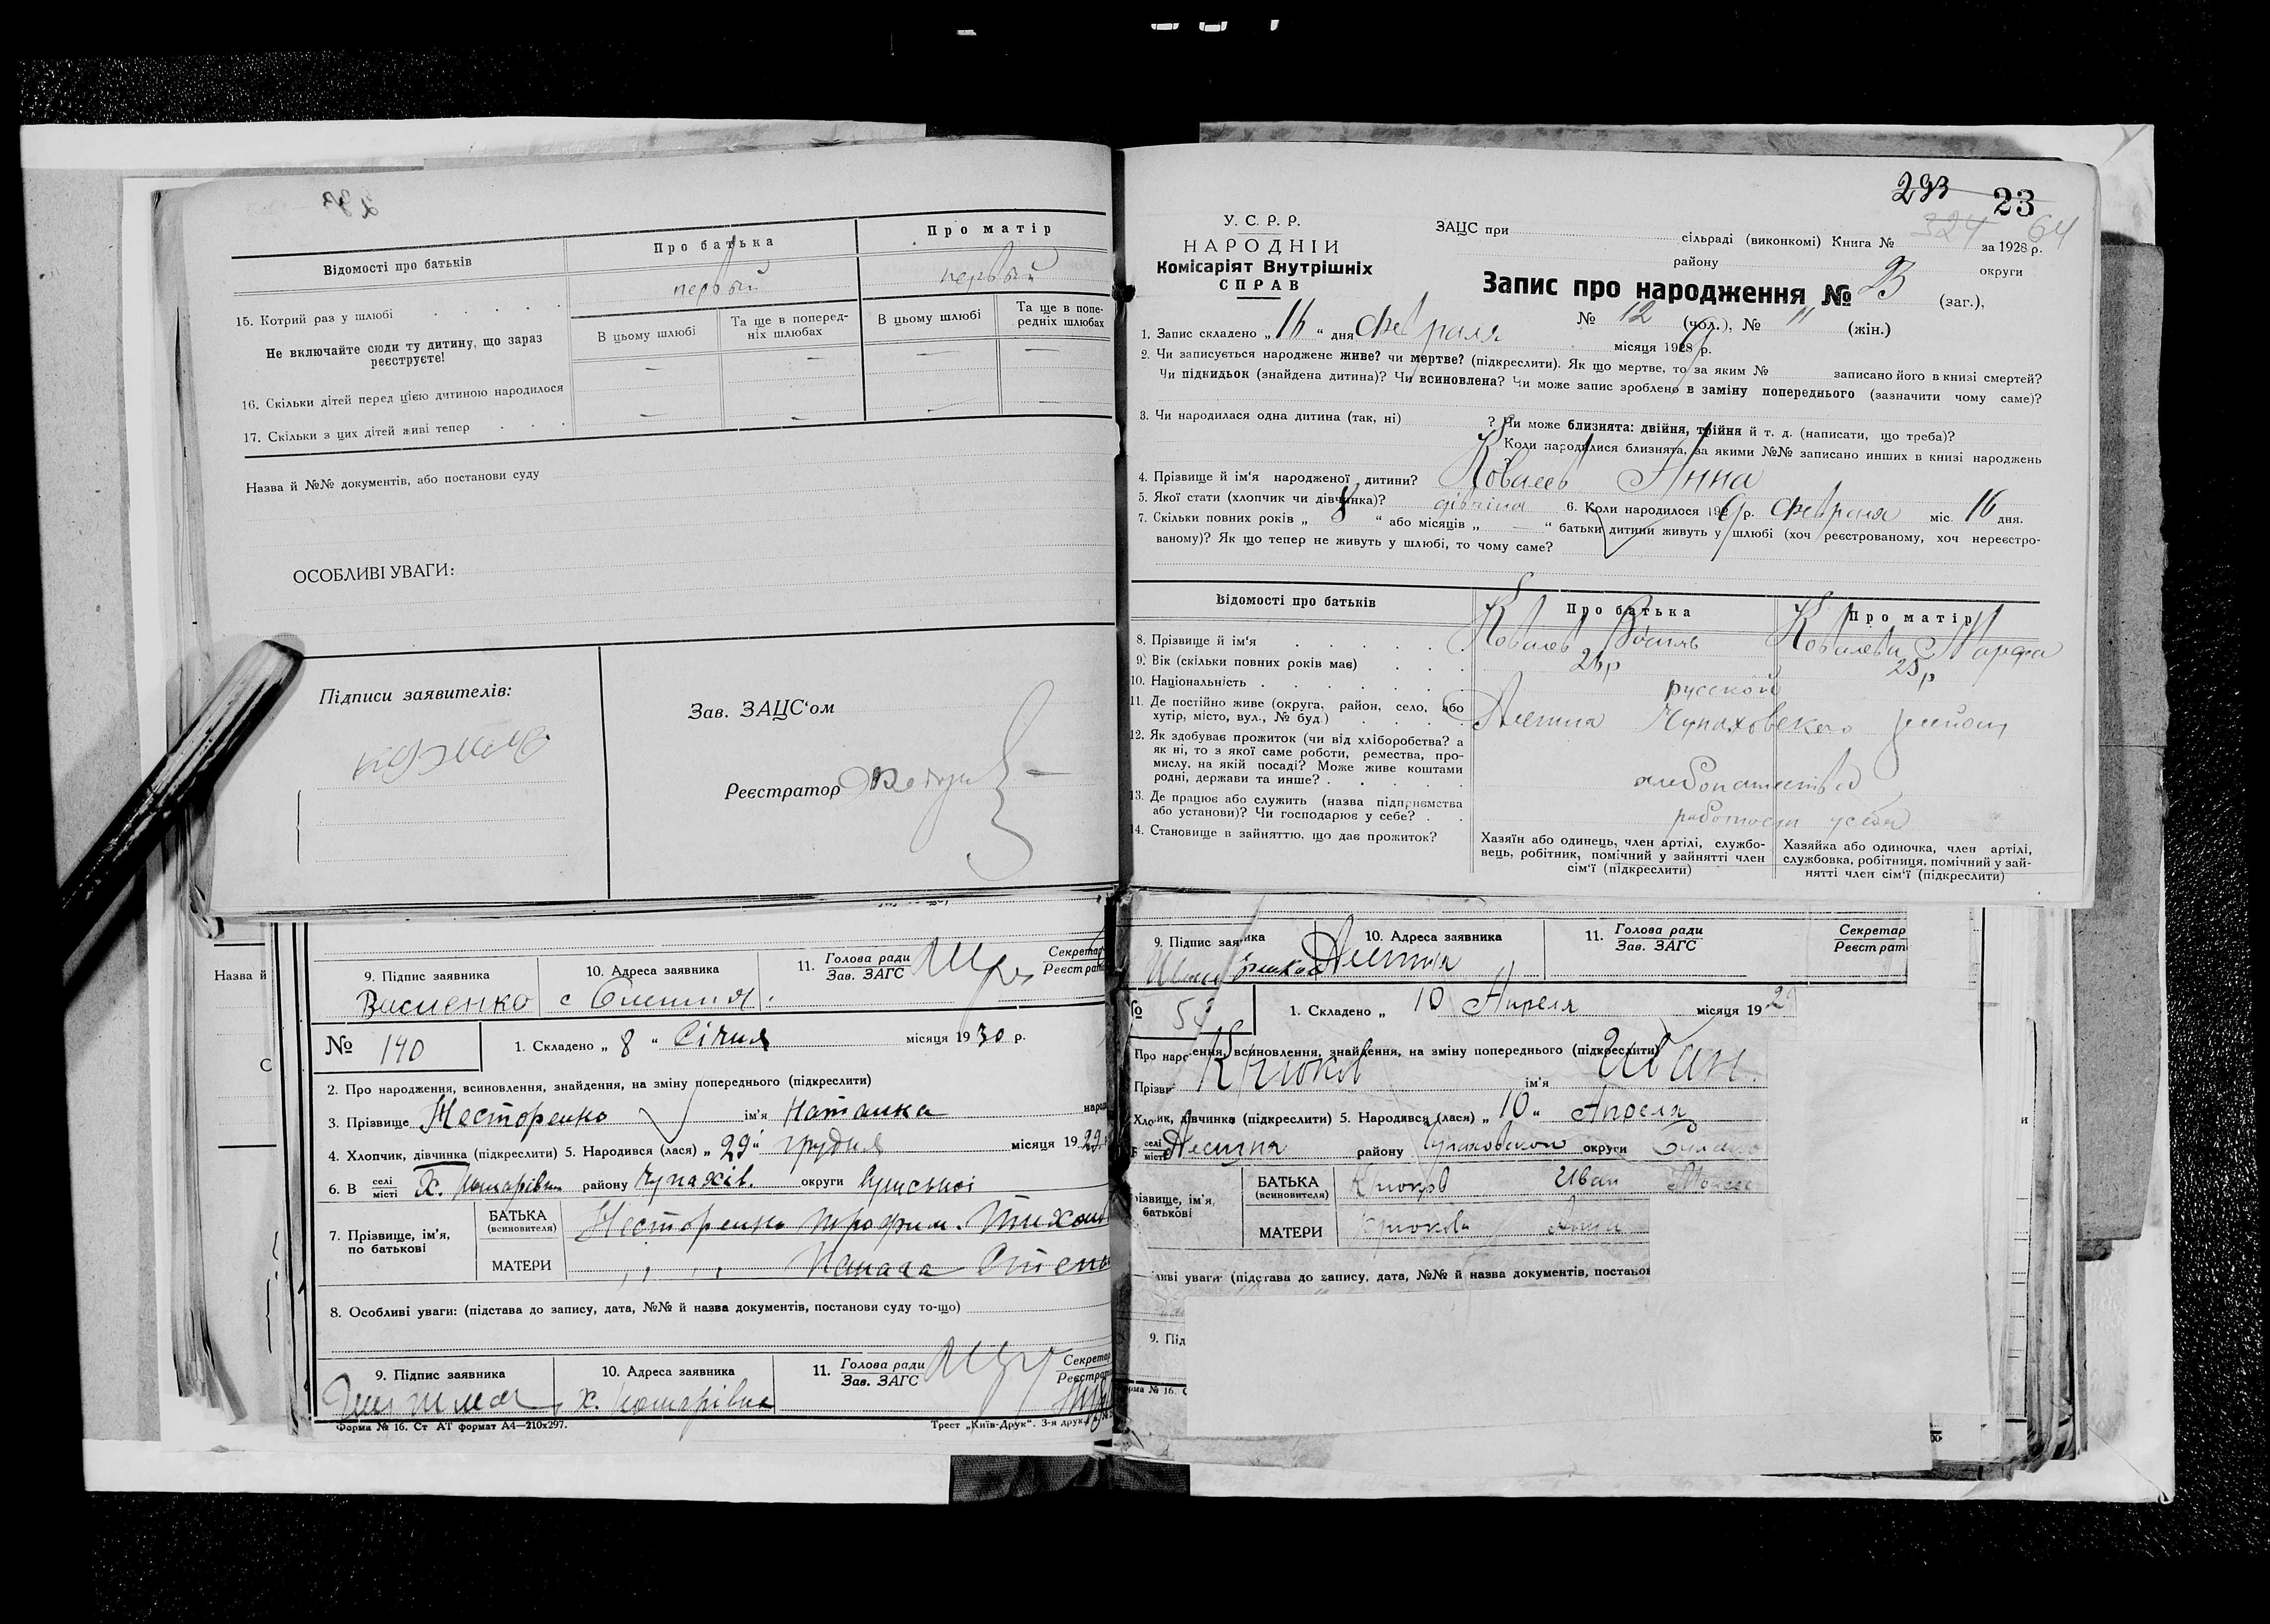 Відомості про батьків
Про батька
Про матір
15. Котрий раз у шлюбі
первый
первый
Не включайте сюди ту дитину, що зараз реєструєте!
В цьому шлюбі
Та ще в поперед-
ніх шлюбах
В цьому шлюбі
Та ще в попе-
редніх шлюбах
16. Скільки дітей перед цією дитиною народилося
— — — —
17. Скільки з цих дітей живі тепер
— — — —
Назва й №№ документів, або постанови суду
ОСОБЛИВІ УВАГИ:
Підписи заявителів:
Зав. ЗАЦС'ом
Реєстратор
Назва й
9. Підпис заявника
10. Адреса заявника
11. Голова ради
Зав. ЗАГС
Секретар
Реєстрат
Василенко
№ 140
1. Складено „ 8 “ Січня місяця 1930 р.
2. Про народження, всиновлення, знайдення, на зміну попереднього (підкреслити)
3. Прізвище Несторенко ім'я Наталка народ
4. Хлопчик, дівчинка (підкреслити) 5. Народився (лася) „ 29 “ грудня місяця 1929
6. В селі
місті
х. району Чупахів. округи
7. Прізвище, ім'я,
по батькові
БАТЬКА
(всиновителя)
Несторенко Трофим
МАТЕРИ
8. Особливі уваги: (підстава до запису, дата, №№ й назва документів, постанови суду то-що)
9. Підпис заявника
10. Адреса заявника
11. Голова ради
Зав. ЗАГС
Секретар
Реєстрат
Форма № 16. Ст АТ формат А4—210x297.
Трест „Київ-Друк“. 3-я друк.
293 23
324 64
У. С. Р. Р.
НАРОДНІЙ
Комісаріят Внутрішніх
СПРАВ
ЗАЦС при
сільраді (виконкомі) Книга № за 1928 р.
району
округи
Запис про народження № 23 (заг.),
№ 12 (чол.), № 11 (жін.)
1. Запис складено „ 16 “ дня Февраля місяця 1929 р.
2. Чи записується народжене живе? чи мертве? (підкреслити). Як що мертве, то за яким № записано його в книзі смертей?
Чи підкидьок (знайдена дитина)? Чи всиновлена? Чи може запис зроблено в заміну попереднього (зазначити чому саме)?
3. Чи народилася одна дитина (так, ні) ? Чи може близнята: двійня, трійня й т. д. (написати, що треба)?
Коли народилися близнята, за якими №№ записано инших в книзі народжень
4. Прізвище й ім'я народженої дитини? Ковалев Анна
5. Якої стати (хлопчик чи дівчинка)? дівчина 6. Коли народилося 1929 р. Февраля міс. 16 дня.
7. Скільки повних років „ “ або місяців „ — “ батьки дитини живуть у шлюбі (хоч реєстрованому, хоч нереєстро-
ваному)? Як що тепер не живуть у шлюбі, то чому саме?
Відомості про батьків
Про батька
Про матір
8. Прізвище й ім'я
Ковалев Василь
Ковалева Марфа
9. Вік (скільки повних років має)
26 р
25 р
10. Національність
русской
11. Де постійно живе (округа, район, село, або
хутір, місто, вул., № буд.)
Алешня Чупаховского района
12. Як здобуває прожиток (чи від хліборобства? а
як ні, то з якої саме роботи, ремества, про-
мислу, на якій посаді? Може живе коштами
родні, держави та инше?
хлебопашество
13. Де працює або служить (назва підприємства
або установи)? Чи господарює у себе?
работают у себя
14. Становище в зайняттю, що дає прожиток?
Хазяїн або одинець, член артілі, службо-
вець, робітник, помічний у зайнятті член
сім'ї (підкреслити)
Хазяйка або одиночка, член артілі,
службовка, робітниця, помічний у зай-
нятті член сім'ї (підкреслити)
9. Підпис заявника
10. Адреса заявника
11. Голова ради
Зав. ЗАГС
Секретар
Реєстрат
Алешня
1. Складено „ 10 Апреля місяця 1929
Про народження, всиновлення, знайдення, на зміну попереднього (підкреслити)
Прізви Крюков ім'я Иван
дівчинка (підкреслити) 5. Народився (лася) „ 10 “ Апреля
селі
місті
Алешня району Чупаховском округи
ізвище, ім'я,
батькові
БАТЬКА
(всиновителя)
Крюков Иван
МАТЕРИ
Крюкова Анна
ливі уваги (підстава до запису, дата, №№ й назва документів, постанов
9. Під
рма № 16. С